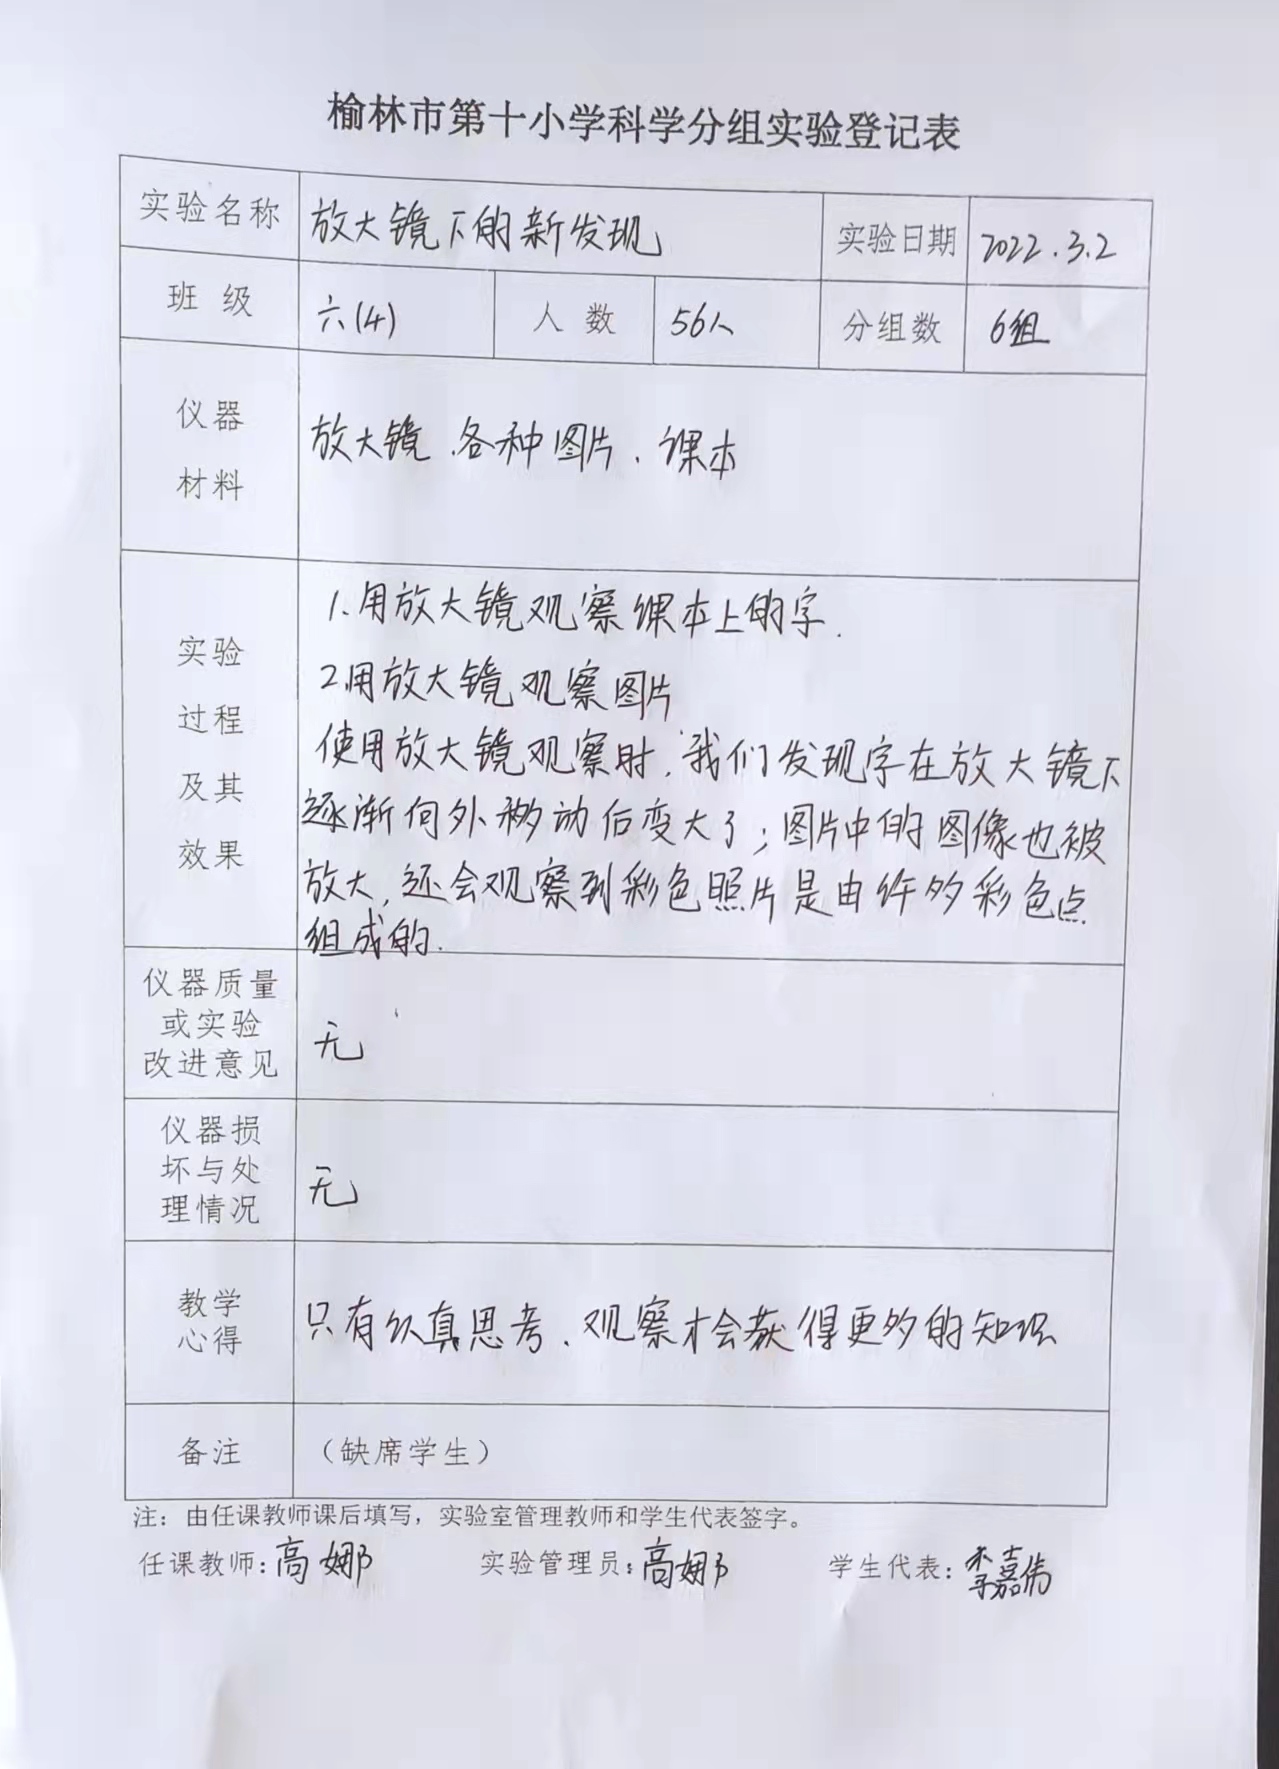 榆林市第十小学科学分组实验登记表
实验名称 放大镜下的新发现 实验日期 2022.3.2
班级 六(4) 人数 56人 分组数 6组
仪器
材料
放大镜.各种图片.课本
实验
过程
及其
效果
1.用放大镜观察课本上的字.
2.用放大镜观察图片
使用放大镜观察时,我们发现字在放大镜下
逐渐向外移动后变大了;图片中的图像也被
放大,还会观察到彩色照片是由许多彩色点
组成的.
仪器质量
或实验
改进意见
无
仪器损
坏与处
理情况
无
教学
心得
只有认真思考.观察才会获得更多的知识
备注 （缺席学生）
注：由任课教师课后填写，实验室管理教师和学生代表签字。
任课教师:高娜 实验管理员:高娜 学生代表:李嘉伟